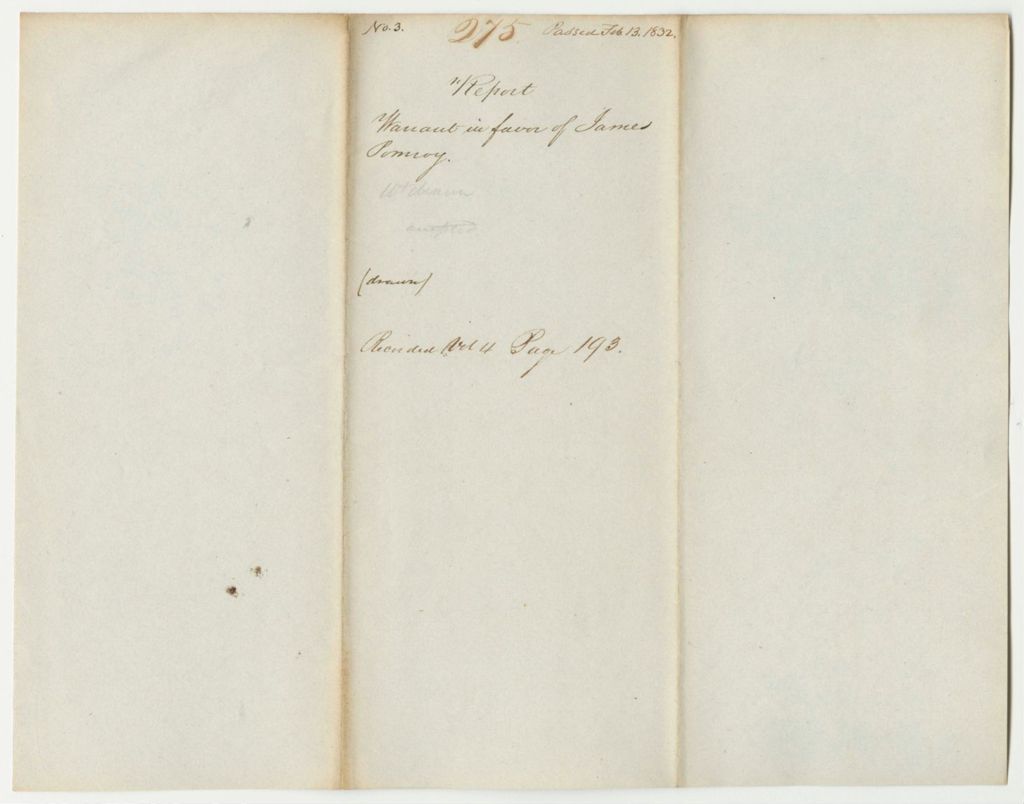 No. 3. 275 Passed Feb 13. 1832.
Report
Warrant in favor of James
Pomroy.
Wt drawn
(drawn)
Recorded Vol 4 Page 193.